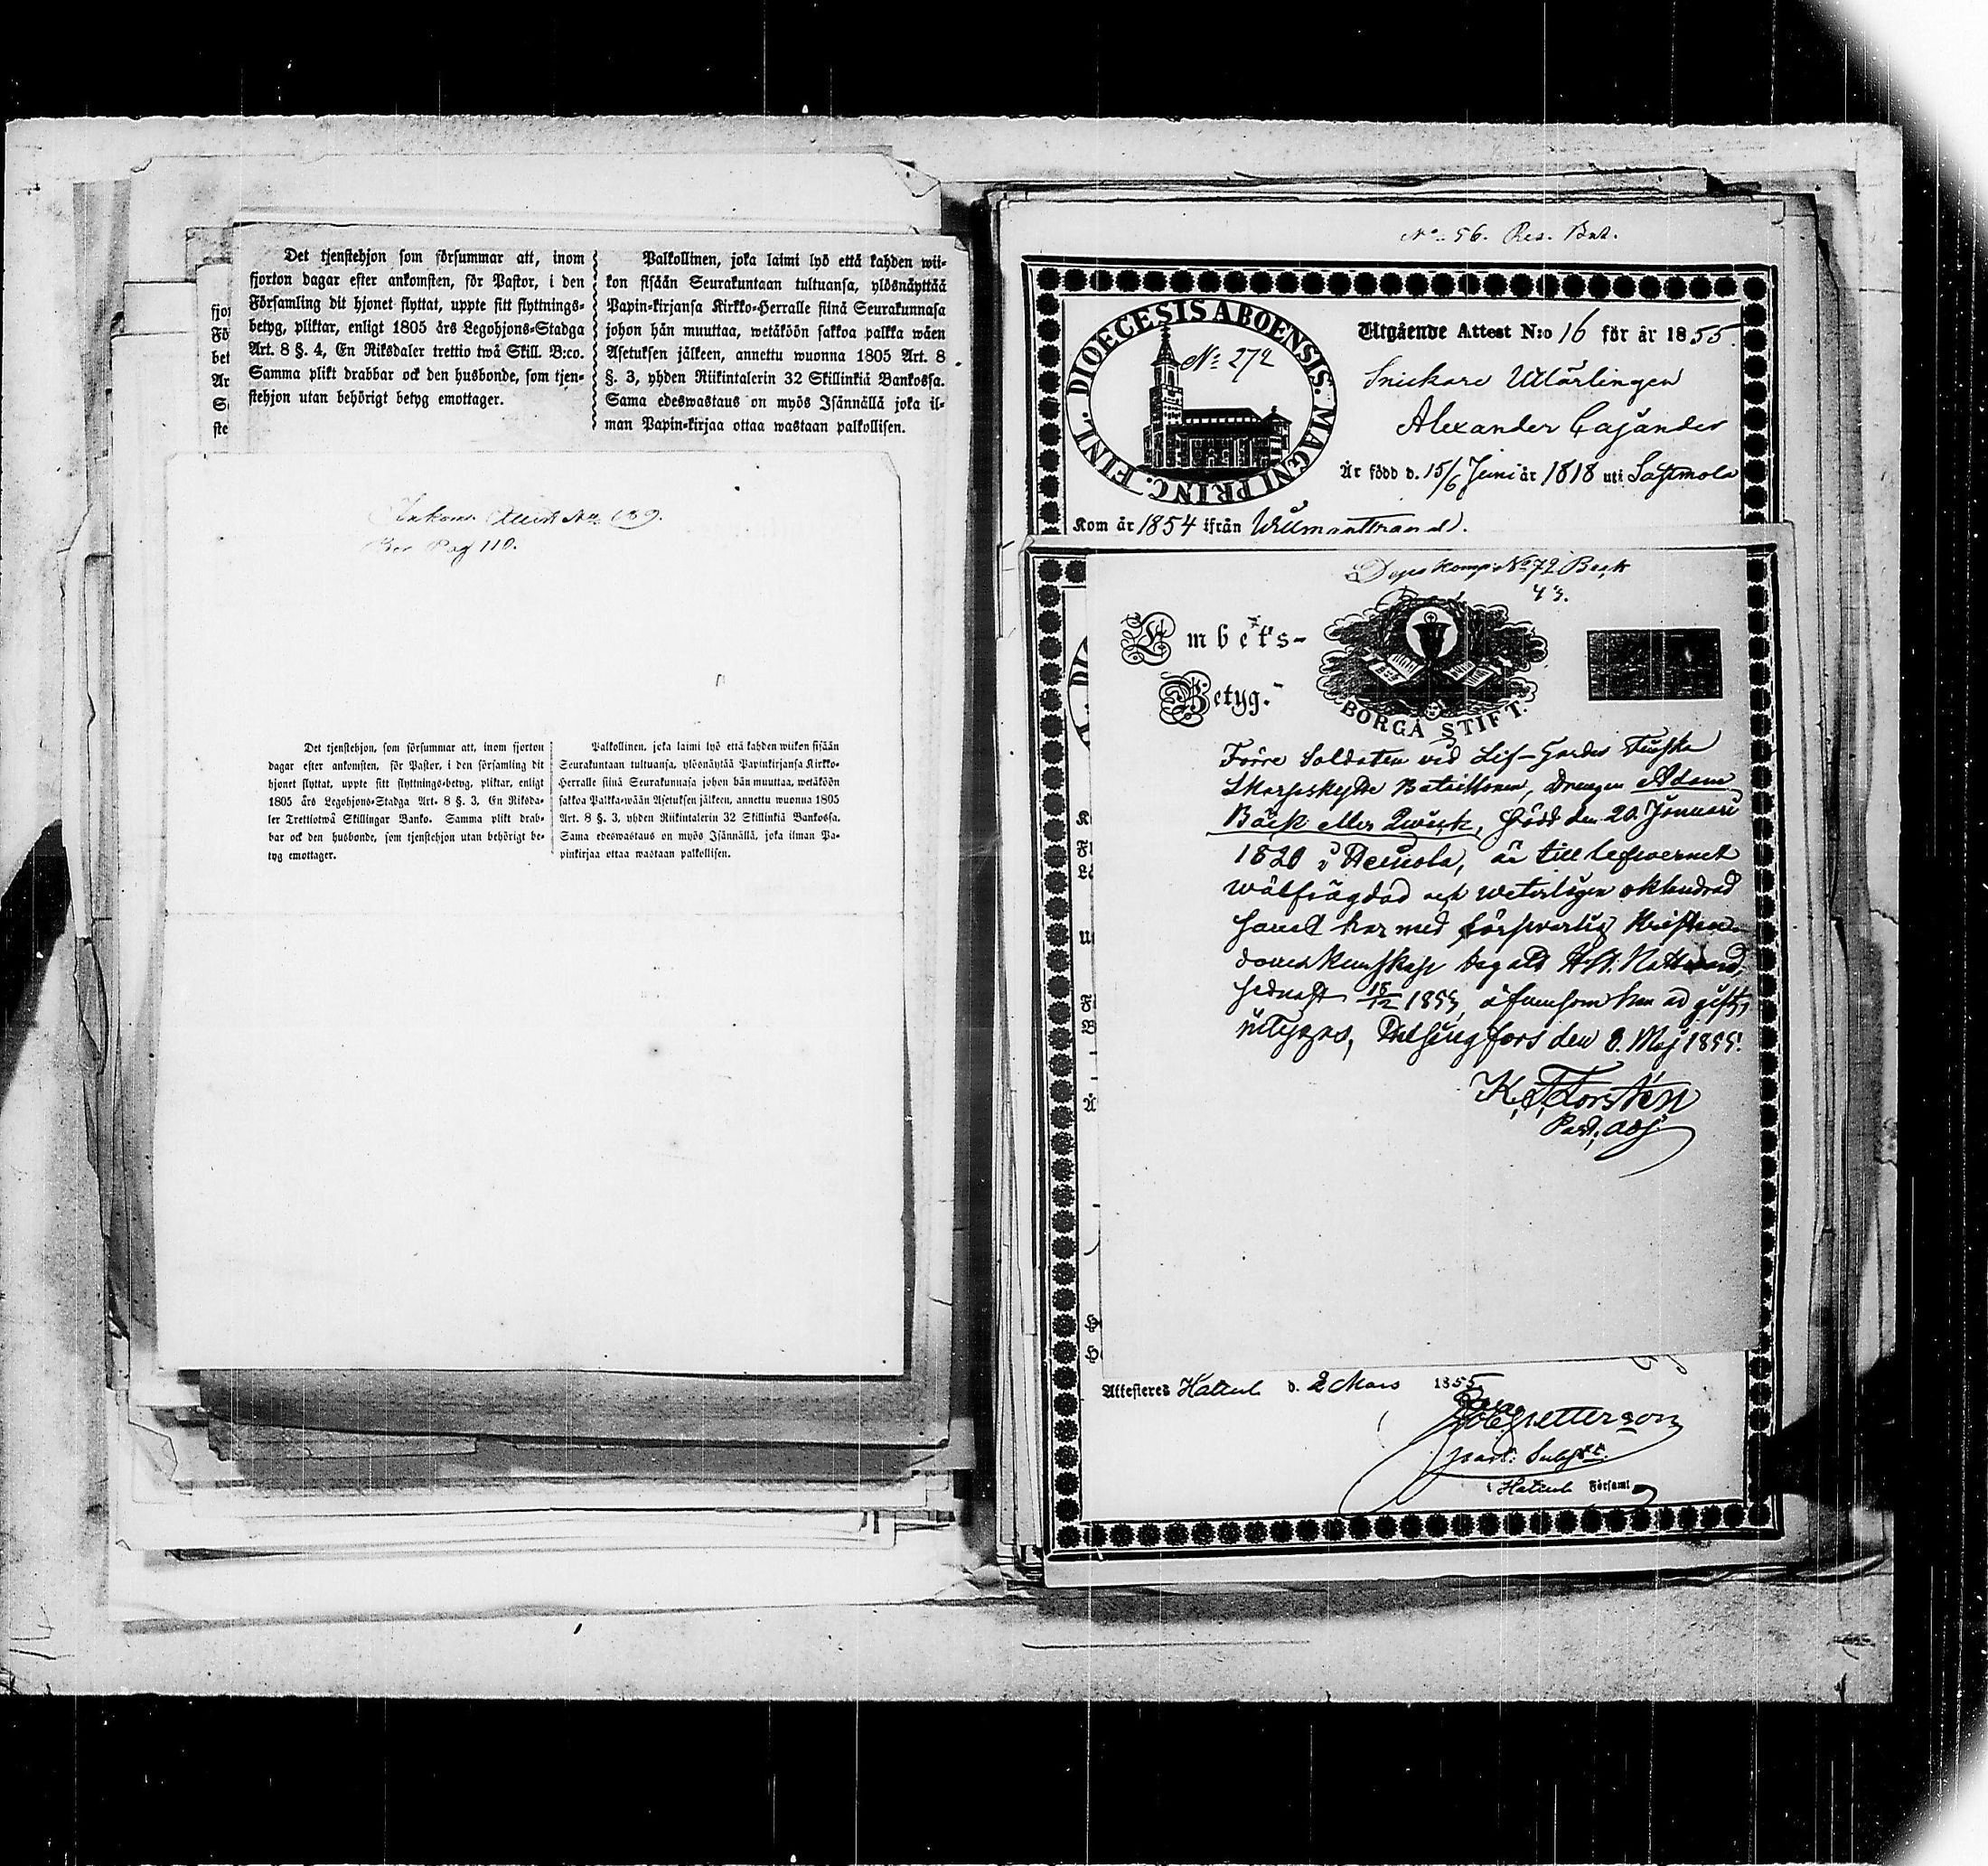 Det tjenstehjon som försummar att, inom
fjorton dagar efter ankomsten, för Pastor, i den
Församling dit hjonet flyttat, uppte sitt flyttnings-
betyg, pliktar, enligt 1805 års Legohjons-Stadga
Art. 8 §. 4, En Riksdaler trettio twå Skill. B:co.
Samma plikt drabbar ock den husbonde, som tjen-
stehjon utan behörigt betyg emottager.
Palkollinen, joka laimi lyö että kahden wii-
kon sisään Seurakuntaan tultuansa, ylösnäyttää
Papin-kirjansa Kirkko-Herralle siinä Seurakunnasa
johon hän muuttaa, wetäköön sakkoa palkka wäen
Asetuksen jälkeen, annettu wuonna 1805 Art. 8
§. 3, yhden Riikintalerin 32 Skillinkiä Bankossa.
Sama edeswastaus on myös Isännällä joka il-
man Papin-kirjaa ottaa wastaan palkollisen.
fjor
Fö
bet
Ar
S
ste
Inkom. Attest No. 189.
Pag 110.
Det tjenstehjon, som försummar att, inom fjorton
dagar efter ankomsten, för Pastor, i den församling dit
hjonet flyttat, uppte sitt flyttnings-betyg, pliktar, enligt
1805 års Legohjons-Stadga Art. 8 §. 3. En Riksda-
ler Trettiotwå Skillingar Banko. Samma plikt drab-
bar ock den husbonde, som tjenstehjon utan behörigt be-
tyg emottager.
Palkollinen, joka laimi lyö että kahden wiikon sisään
Seurakuntaan tultuansa, ylösnäytää Papinkirjansa Kirkko-
Herralle siinä Seurakunnasa johon hän muuttaa, wetäköön
sakkoa Palkka-wään Asetuksen jälkeen, annettu wuonna 1805
Art. 8 §. 3, yhden Riikintalerin 32 Skillinkiä Bankossa.
Sama edeswastaus on myös Isännällä, joka ilman Pa-
pinkirjaa ottaa wastaan palkollisen.
No. 56. Res. Bat.
DIOECESIS ABOENSIS. MAGNI PRINC. FINL.
No 272
Utgående Attest N:o 16 för år 1855.
Snickare Utlärlingen
Alexander Cajander
Är född d. 15/6 Juni år 1818 uti Sastmola
Kom år 1854 ifrån Willmanstrand.
Komp. No 72 Beck
43.
Embets-
Betyg.
BORGÅ STIFT.
Förre Soldaten vid Lif-Gardes Finska
Skarpskytte Bataillonen, Drengen Adam
Bäck eller Qwick, född den 20 Januari
1820 i Heinola, är till lefwernet
wälfrägdad och weterligen okludrad
samt har med försvarlig Kristen-
doms kunskap begått H. H. Nattward,
sednast 18/12 1853, äfvensom han är gift,
intygas, Helsingfors den 8. Maj 1855.
K. F. Forstén
Past. adj.
Attesteras Hattul d. 2 Mars 1855
Petterson
past: Subst:
i Hattul Församl.